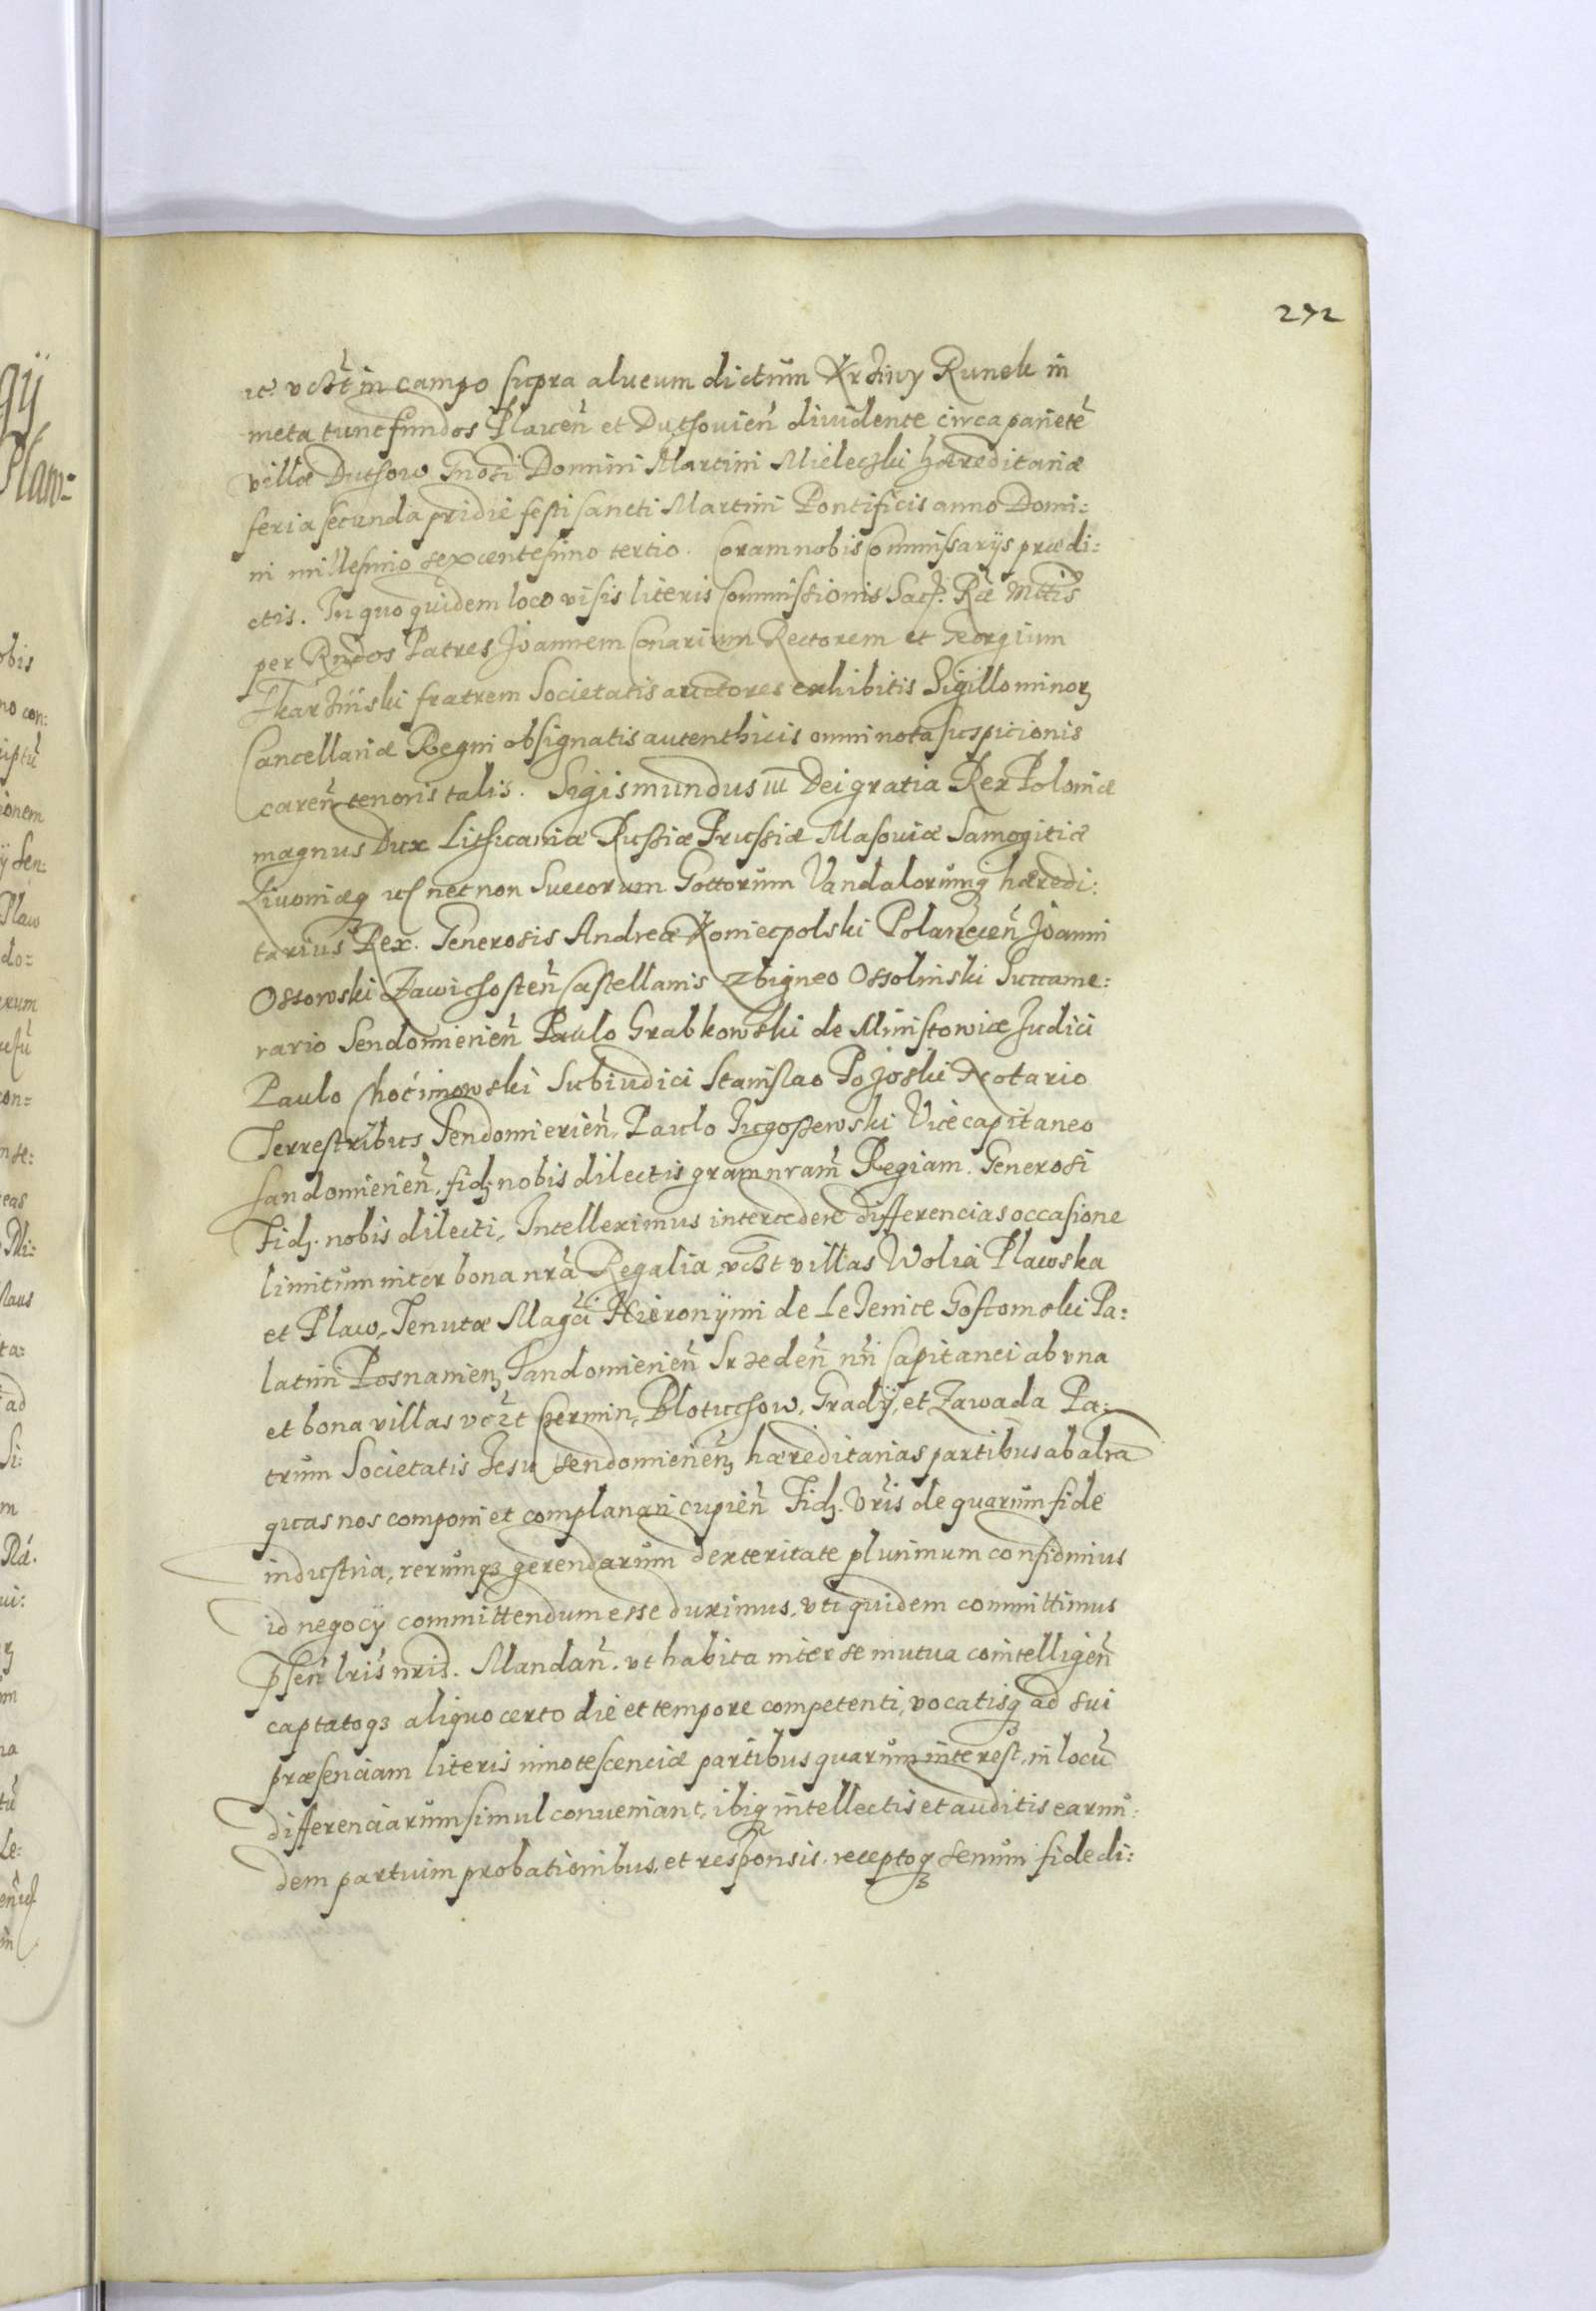 272
in campo supra alueum dictum Krziwy Runek in
meta tunc fundos Plawen̄ et Dutsouien̄ diuidente circa parietē
villæ Dutsow Gnosi Domini Martini Mieleczki hæreditariæ
feria secunda pridie festi sancti Martini Pontificis anno Domi:
ni millesimo sexcentesimo tertio. Coram nobis Commissarijs prædi:
ctis. In quo quidem loco visis literis Commissionis Sacr. Ræ Mttis
per Rndos Patres Joannem Conarium Rectorem et Georgium
fratrem Societatis auctores exhibitis Sigillo minorj
Cancellariæ Regni obsignatis autenthicis omni nota suspicionis
caren̄ tenoris talis. Sigismundus III Dei gratia Rex Poloniæ
magnus Dux Lithuaniæ Russiæ Prussiæ Masouiæ Samogitiæ
Liuoniæq nec non Sueorum Gottorum Vandalorumq hæredi:
tarius Rex. Generosis Andreæ Koniecpolski Polanecen̄ Joanni
Ossowski Zawichosten̄ Castellanis Zbigneo Ossolinski Succame:
rario Sendomirien̄ Paulo Grabkowski de Judici
Paulo Chocimowski Subiudici Stanislao Notario
Terrestribus Sendomierien̄, Paulo Vicecapitaneo
Sandomierien̄, fidj nobis dilectis gram nram̄ Regiam. Generosi
Fidj. nobis dilecti, Intelleximus intercedere differencias occasione
limitum inter bona nrā Regalia, vczt villas Wolia Plawska
et Plaw, Tenutæ Magci Hieronÿmi de Leżenice Gostomski Pa:
latini Posnanienj Sandomierien̄ Srzeden̄ nri Capitanei ab vna
et bona villas vczt Czermin, Blotuchow, Gradÿ, et Zawada Pa:
trum Societatis Jesu Sendomirienj hæreditarias partibus ab alrā
quas nos componi et complanari cupien̄ Fidj. Vris de quarum fide
industria, rerumqz gerendarum dexteritate plurimum confidimus
id negocÿ committendum esse duximus, vti quidem committimus
pſen̄ lris nris. Mandan̄. vt habita inter se mutua cointelligen̄
captatoqz aliquo certo die et tempore competenti, vocatisq ad sui
præsenciam literis innotescenciæ partibus quarum interest, in locū
differenciarum simul conueniant, ibiq intellectis et auditis earun:
dem partium probationibus, et responsis, receptoq senum fide di: